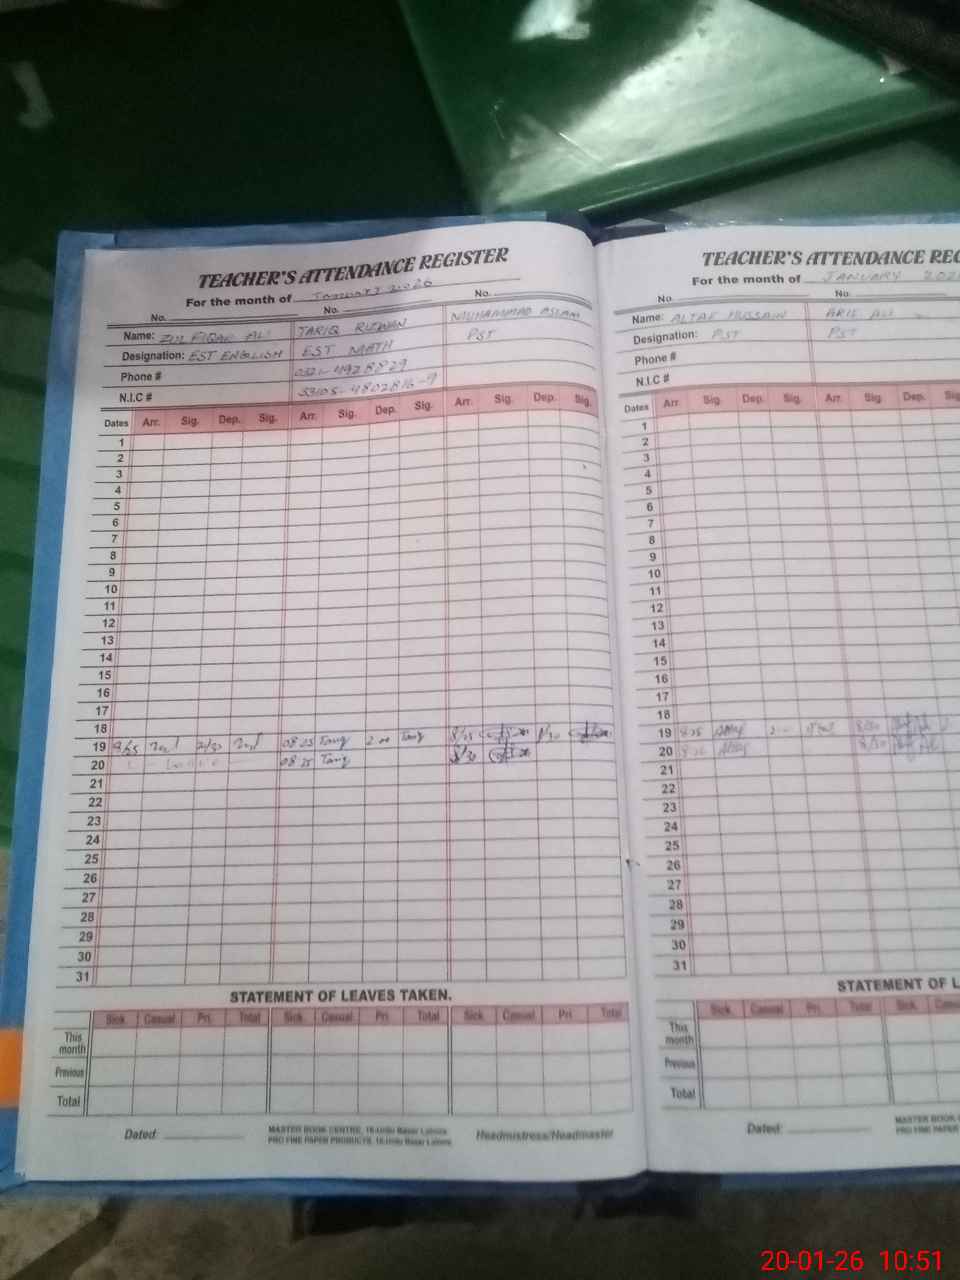 TEACHER'S ATTENDANCE REGISTER
For the month of January 2026
No. No. No.
Name: ZULFIQAR ALI TARIQ RIZWAN MUHAMMAD ASLAM
Designation: EST ENGLISH EST MATH PST
Phone # 0321-4928829
N.I.C # 33105-4802816-9
Dates Arr. Sig. Dep. Sig. Arr. Sig. Dep. Sig. Arr. Sig. Dep. Sig.
1
2
3
4
5
6
7
8
9
10
11
12
13
14
15
16
17
18
19 8/25 08 25 Tariq 2 00 Tariq 8/25 1/30
20 08 25 Tariq 8/30
21
22
23
24
25
26
27
28
29
30
31
STATEMENT OF LEAVES TAKEN.
Sick Casual Pri. Total Sick Casual Pri. Total Sick Casual Pri. Total
This month
Previous
Total
Dated: MASTER BOOK CENTRE, 16-Urdu Bazar Lahore. Headmistress/Headmaster
PRO FINE PAPER PRODUCTS, 16-Urdu Bazar Lahore.
TEACHER'S ATTENDANCE REG
For the month of JANUARY 202
No. No.
Name: ALTAF HUSSAIN ALI
Designation: PST PST
Phone #
N.I.C #
Dates Arr. Sig. Dep. Sig. Arr. Sig. Dep. Sig
1
2
3
4
5
6
7
8
9
10
11
12
13
14
15
16
17
18
19 8 25 8/30
20 8/30
21
22
23
24
25
26
27
28
29
30
31
STATEMENT OF L
Sick Casual Pri. Total Sick
This month
Previous
Total
Dated: MASTER BOOK
PRO FINE PAPER
20-01-26 10:51